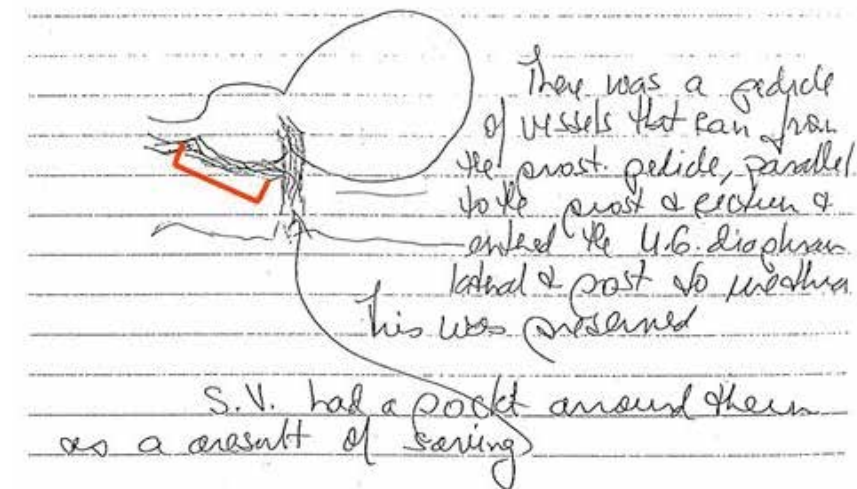 There was a pedicle
of vessels that ran from
the prost. pedicle, parallel
to the prost & rectum &
entered the U.G. diaphram
lateral & post to urethra
This was preserved
S.V. had a pocket around them
as a result of saving